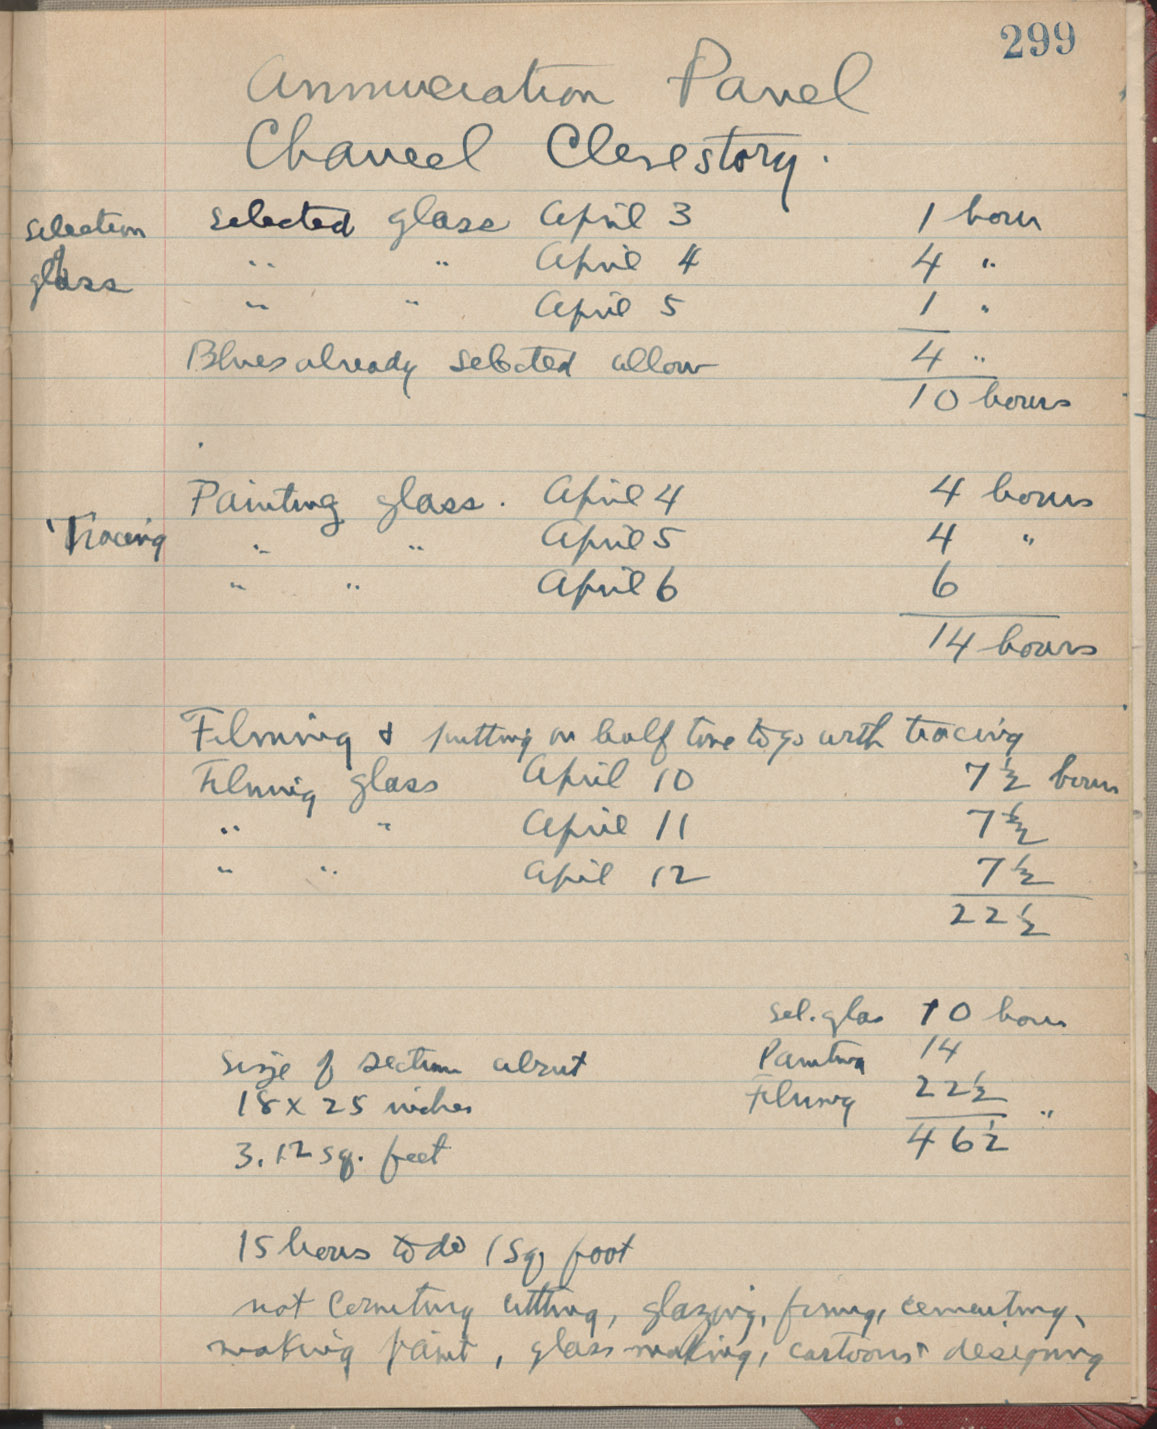 299
Annunciation Panel
Chancel Clerestory.
Selection of glass
selected glass April 3 1 hour
" " April 4 4 "
" " April 5 1 "
Blues already selected allow 4 "
10 hours
Tracing
Painting glass. April 4 4 hours
" " April 5 4 "
" " April 6 6
14 hours
Filming & putting on half tone to go with tracing
Filming glass April 10 7 1/2 hours
" " April 11 7 1/2
" " April 12 7 1/2
22 1/2
sel. glas 10 hours
Painting 14
Filming 22 1/2 "
46 1/2
Size of section about
18 x 25 inches
3.12 sq. feet
15 hours to do 1 sq foot
not counting cutting, glazing, firing, cementing,
making paint, glass making, cartoons + designing